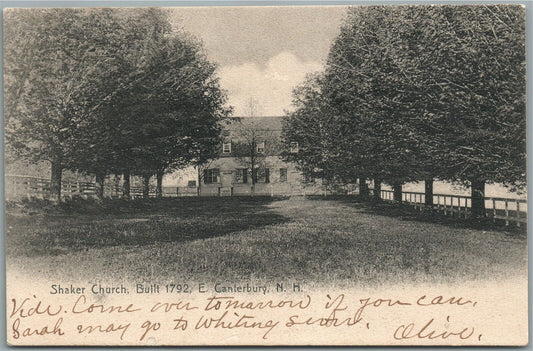 Shaker Church, Built 1792, E. Canterbury, N. H.
Vide. Come over tomorrow if you can,
Sarah may go to Whiting soon. Olive.